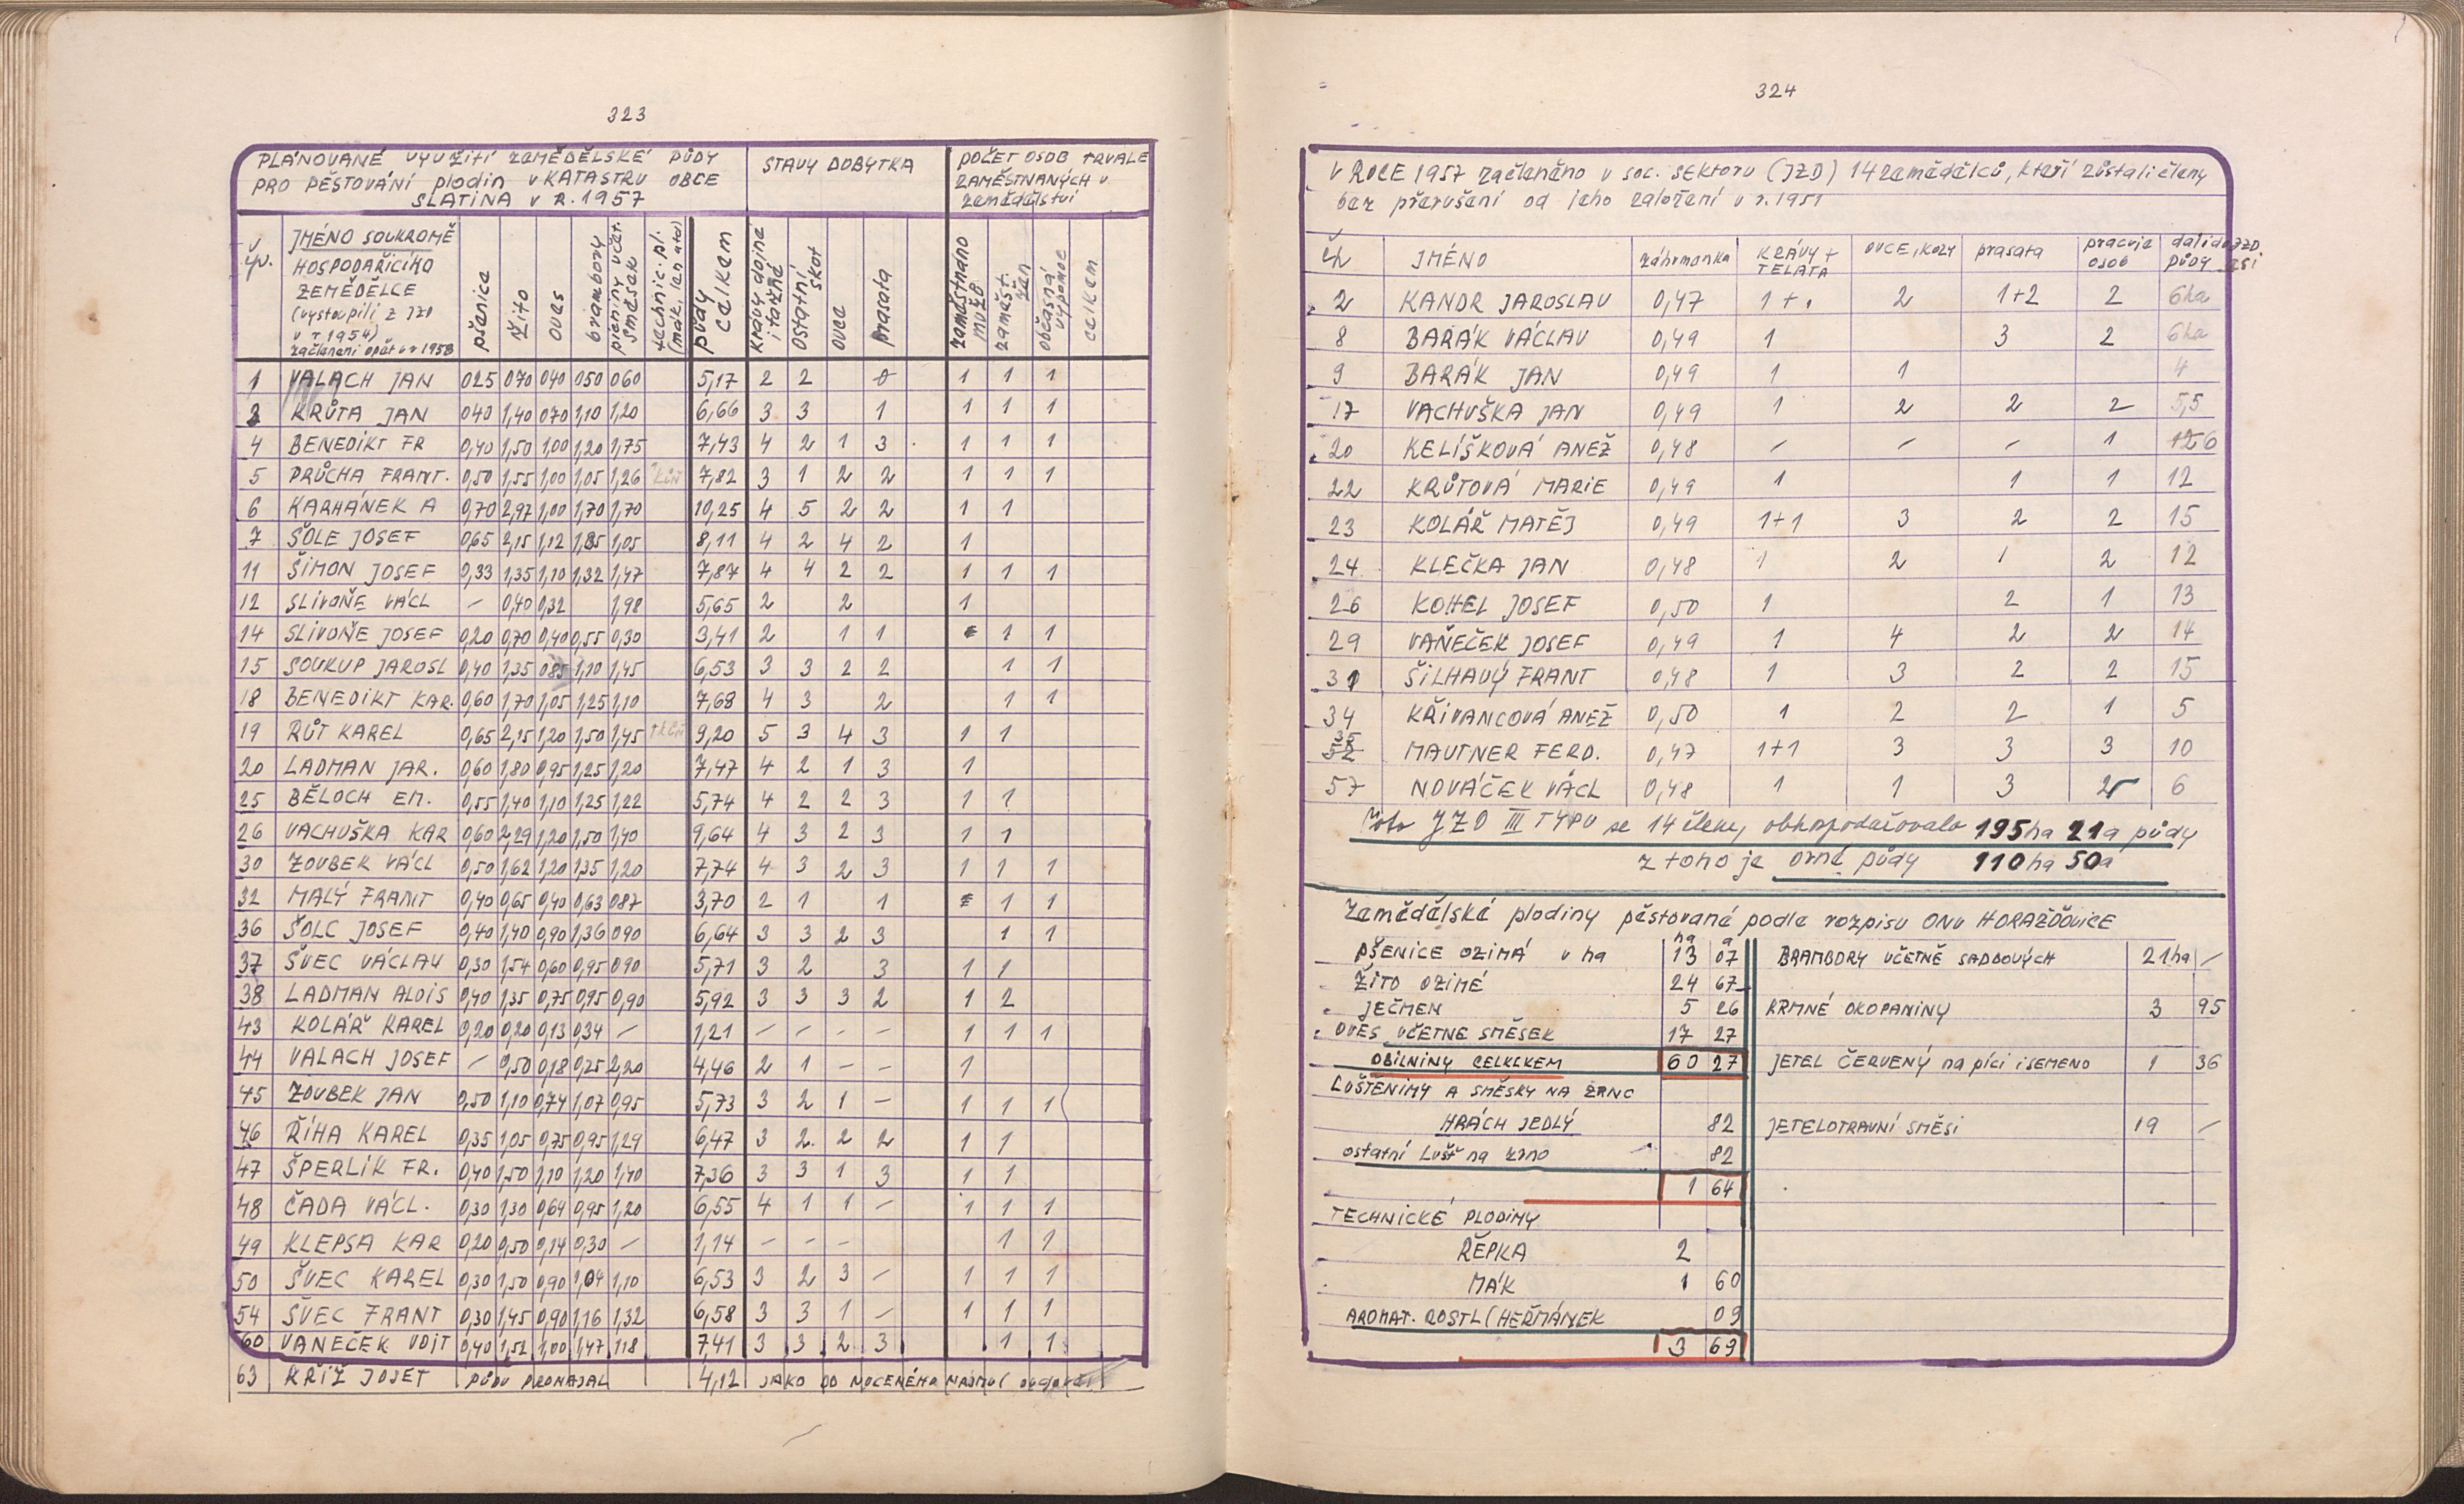 323
PLÁNOVANÉ VYUŽITÍ ZEMĚDĚLSKÉ PŮDY
PRO PĚSTOVÁNÍ plodin v KATASTRU OBCE
SLATINA v R. 1957
STAVY DOBYTKA
POČET OSOB TRVALE
ZAMĚSTNANÝCH v
zemědělství
čp. JMÉNO SOUKROMĚ
HOSPODAŘÍCÍHO
ZEMĚDĚLCE
(vystoupili z JZD
v r 1954)
začleneni opět v r 1958
pšenice
žito
oves
brambory
pícniny včet. směsek
technic. pl. (mák, len atd)
půdy celkem
krávy dojné i tažné
ostatní skot
ovce
prasata
zaměstnáno mužů
zaměst. žen
občasná výpomoc
celkem
1 VALACH JAN 025 070 040 050 060 5,17 2 2 0 1 1 1
2 KRŮTA JAN 040 1,40 070 1,10 1,20 6,66 3 3 1 1 1 1
4 BENEDIKT FR 0,40 1,50 1,00 1,20 1,75 7,43 4 2 1 3 1 1 1
5 PRŮCHA FRANT. 0,50 1,55 1,00 1,05 1,26 7,82 3 1 2 2 1 1 1
6 KARHÁNEK A 0,70 2,97 1,00 1,70 1,70 10,25 4 5 2 2 1 1
7 ŠOLE JOSEF 0,65 2,15 1,12 1,85 1,05 8,11 4 2 4 2 1
11 ŠIMON JOSEF 0,33 1,35 1,10 1,32 1,47 7,87 4 4 2 2 1 1 1
12 SLIVOŇE VÁCL – 0,40 0,32 1,98 5,65 2 2 1
14 SLIVOŇE JOSEF 0,20 0,70 0,40 0,55 0,30 3,41 2 1 1 1 1
15 SOUKUP JAROSL 0,40 1,35 085 1,10 1,45 6,53 3 3 2 2 1 1
18 BENEDIKT KAR. 0,60 1,70 1,05 1,25 1,10 7,68 4 3 2 1 1
19 RŮT KAREL 0,65 2,15 1,20 1,50 1,45 9,20 5 3 4 3 1 1
20 LADMAN JAR. 0,60 1,80 0,95 1,25 1,20 7,47 4 2 1 3 1
25 BĚLOCH EM. 0,55 1,40 1,10 1,25 1,22 5,74 4 2 2 3 1 1
26 VACHUŠKA KAR 0,60 2,29 1,20 1,50 1,40 9,64 4 3 2 3 1 1
30 ZOUBEK VÁCL 0,50 1,62 1,20 1,35 1,20 7,74 4 3 2 3 1 1 1
32 MALÝ FRANT 0,40 0,65 0,40 0,63 087 3,70 2 1 1 1 1
36 ŠOLC JOSEF 0,40 1,40 0,90 1,36 090 6,64 3 3 2 3 1 1
37 ŠVEC VÁCLAV 0,30 1,54 0,60 0,95 090 5,71 3 2 3 1 1
38 LADMAN ALOIS 0,40 1,35 0,75 0,95 0,90 5,92 3 3 3 2 1 2
43 KOLÁŘ KAREL 0,20 0,20 0,13 0,34 – 1,21 – – – – 1 1 1
44 VALACH JOSEF – 0,50 0,18 0,25 2,20 4,46 2 1 – – 1
45 ZOUBEK JAN 0,50 1,10 0,74 1,07 0,95 5,73 3 2 1 – 1 1 1
46 ŘÍHA KAREL 0,35 1,05 0,75 0,95 1,29 6,47 3 2 2 2 1 1
47 ŠPERLIK FR. 0,40 1,50 1,10 1,20 1,40 7,36 3 3 1 3 1 1
48 ČADA VÁCL. 0,30 1,30 0,64 0,95 1,20 6,55 4 1 1 – 1 1 1
49 KLEPSA KAR 0,20 0,50 0,14 0,30 – 1,14 – – – 1 1
50 ŠVEC KAREL 0,30 1,50 0,90 1,04 1,10 6,53 3 2 3 – 1 1 1
54 ŠVEC FRANT 0,30 1,45 0,90 1,16 1,32 6,58 3 3 1 – 1 1 1
60 VANEČEK VOJT 0,40 1,52 1,00 1,47 1,18 7,41 3 3 2 3 1 1
63 KŘÍŽ JOSEF PŮDU PRONAJAL 4,12 JAKO DO NUCENÉHO NÁJMU
324
V ROCE 1957 začleněno v soc. SEKTORU (JZD) 14 zemědělců, kteří zůstali členy
bez přerušení od jeho založení v r. 1951
čp JMÉNO záhumenka KRÁVY + TELATA OVCE, KOZY prasata pracuje osob dali do JZD půdy asi
2 KANDR JAROSLAV 0,47 1+. 2 1+2 2 6ha
8 BARÁK VÁCLAV 0,49 1 3 2 6ha
9 BARÁK JAN 0,49 1 1 4
17 VACHUŠKA JAN 0,49 1 2 2 2 5,5
20 KELÍŠKOVÁ ANEŽ 0,48 – – – 1 12 6
22 KRŮTOVÁ MARIE 0,49 1 1 1 12
23 KOLÁŘ MATĚJ 0,49 1+1 3 2 2 15
24 KLEČKA JAN 0,48 1 2 1 2 12
26 KOHEL JOSEF 0,50 1 2 1 13
29 VAŇEČEK JOSEF 0,49 1 4 2 2 14
31 ŠILHAVÝ FRANT 0,48 1 3 2 2 15
34 KŘIVANCOVÁ ANEŽ 0,50 1 2 2 1 5
35 52 MAUTNER FERD. 0,47 1+1 3 3 3 10
57 NOVÁČEK VÁCL 0,48 1 1 3 2 6
Toto JZD III TYPU se 14 členy, obhospodařovalo 195 ha 21 a půdy
z toho je orné půdy 110 ha 50 a
Zemědělské plodiny pěstované podle rozpisu ONV HORAŽĎOVICE
ha a
PŠENICE OZIMÁ v ha 13 07 BRAMBORY VČETNĚ SADBOVÝCH 21ha –
ŽITO OZIMÉ 24 67
JEČMEN 5 26 KRMNÉ OKOPANINY 3 95
OVES VČETNE SMĚSEK 17 27
OBILNINY CELKLKEM 60 27 JETEL ČERVENÝ na píci i SEMENO 1 36
LUŠTĚNINY A SMĚSKY NA ZRNO
HRÁCH JEDLÝ 82 JETELOTRAVNÍ SMĚSI 19 –
ostatní Lušť na zrno 82
1 64
TECHNICKÉ PLODINY
ŘEPKA 2
MÁK 1 60
AROMAT. ROSTL (HEŘMÁNEK 09
3 69